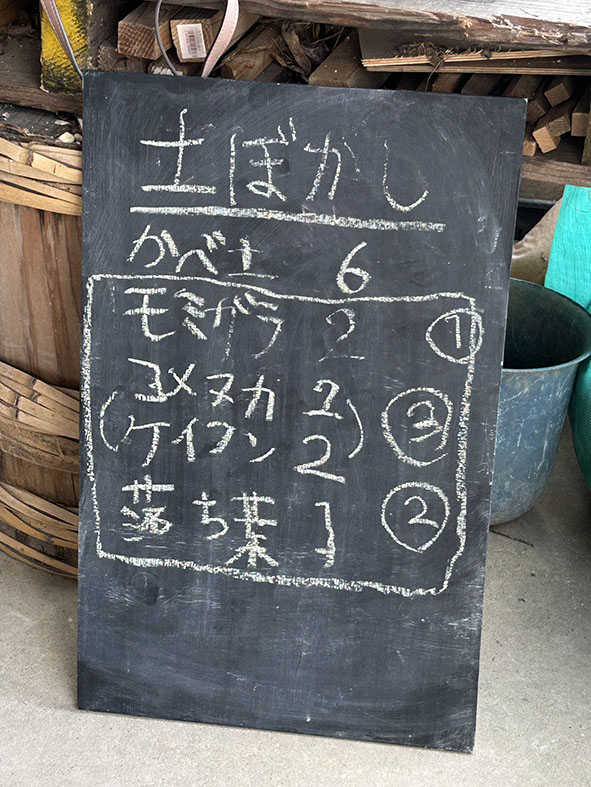 土ぼかし
かべ土 6
モミガラ 2 ①
コメヌカ 2
(ケイフン 2) ③
落ち葉 1 ②